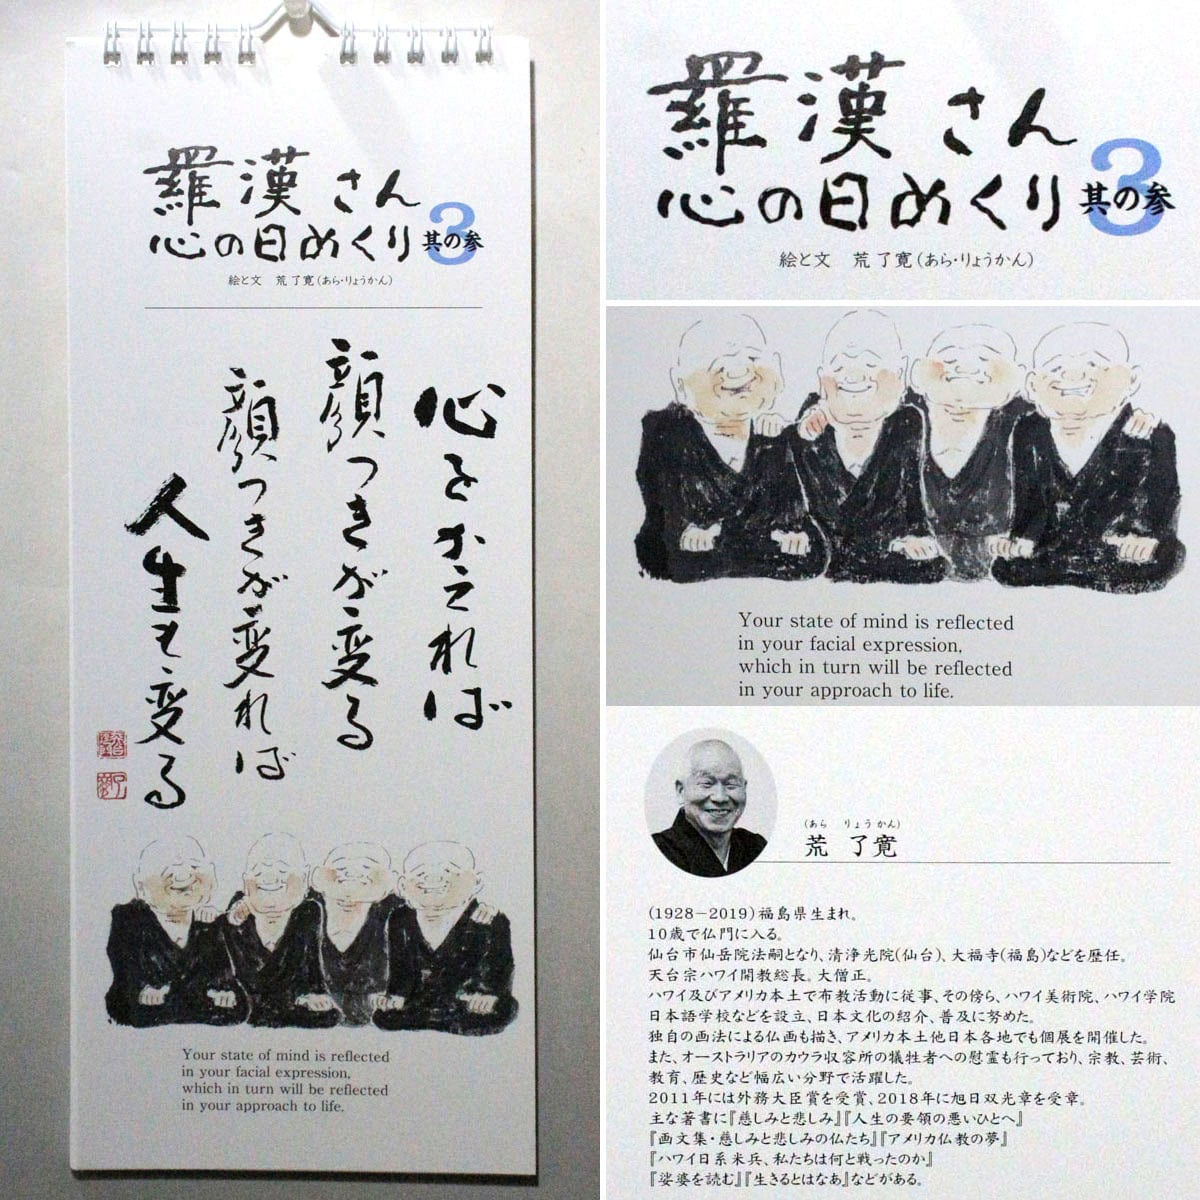 羅漢さん
心の日めくり 其の参
3
絵と文 荒 了寛(あら・りょうかん)
心をかえれば
顔つきが変る
顔つきが変れば
人生も変る
Your state of mind is reflected
in your facial expression,
which in turn will be reflected
in your approach to life.
羅漢さん
心の日めくり 其の参
3
絵と文 荒 了寛(あら・りょうかん)
Your state of mind is reflected
in your facial expression,
which in turn will be reflected
in your approach to life.
(あら りょうかん)
荒 了寛
(1928−2019)福島県生まれ。
10歳で仏門に入る。
仙台市仙岳院法嗣となり、清浄光院(仙台)、大福寺(福島)などを歴任。
天台宗ハワイ開教総長。大僧正。
ハワイ及びアメリカ本土で布教活動に従事、その傍ら、ハワイ美術院、ハワイ学院
日本語学校などを設立、日本文化の紹介、普及に努めた。
独自の画法による仏画も描き、アメリカ本土他日本各地でも個展を開催した。
また、オーストラリアのカウラ収容所の犠牲者への慰霊も行っており、宗教、芸術、
教育、歴史など幅広い分野で活躍した。
2011年には外務大臣賞を受賞、2018年に旭日双光章を受章。
主な著書に『慈しみと悲しみ』『人生の要領の悪いひとへ』
『画文集・慈しみと悲しみの仏たち』『アメリカ仏教の夢』
『ハワイ日系米兵、私たちは何と戦ったのか』
『娑婆を読む』『生きるとはなあ』などがある。